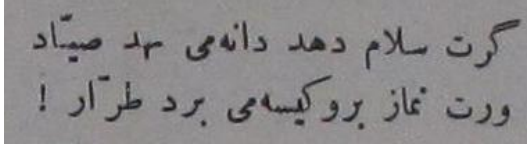 گرت سلام دهد دانه‌می نهد صیّاد
ورت نماز برو کیسه‌می برد طرّار !